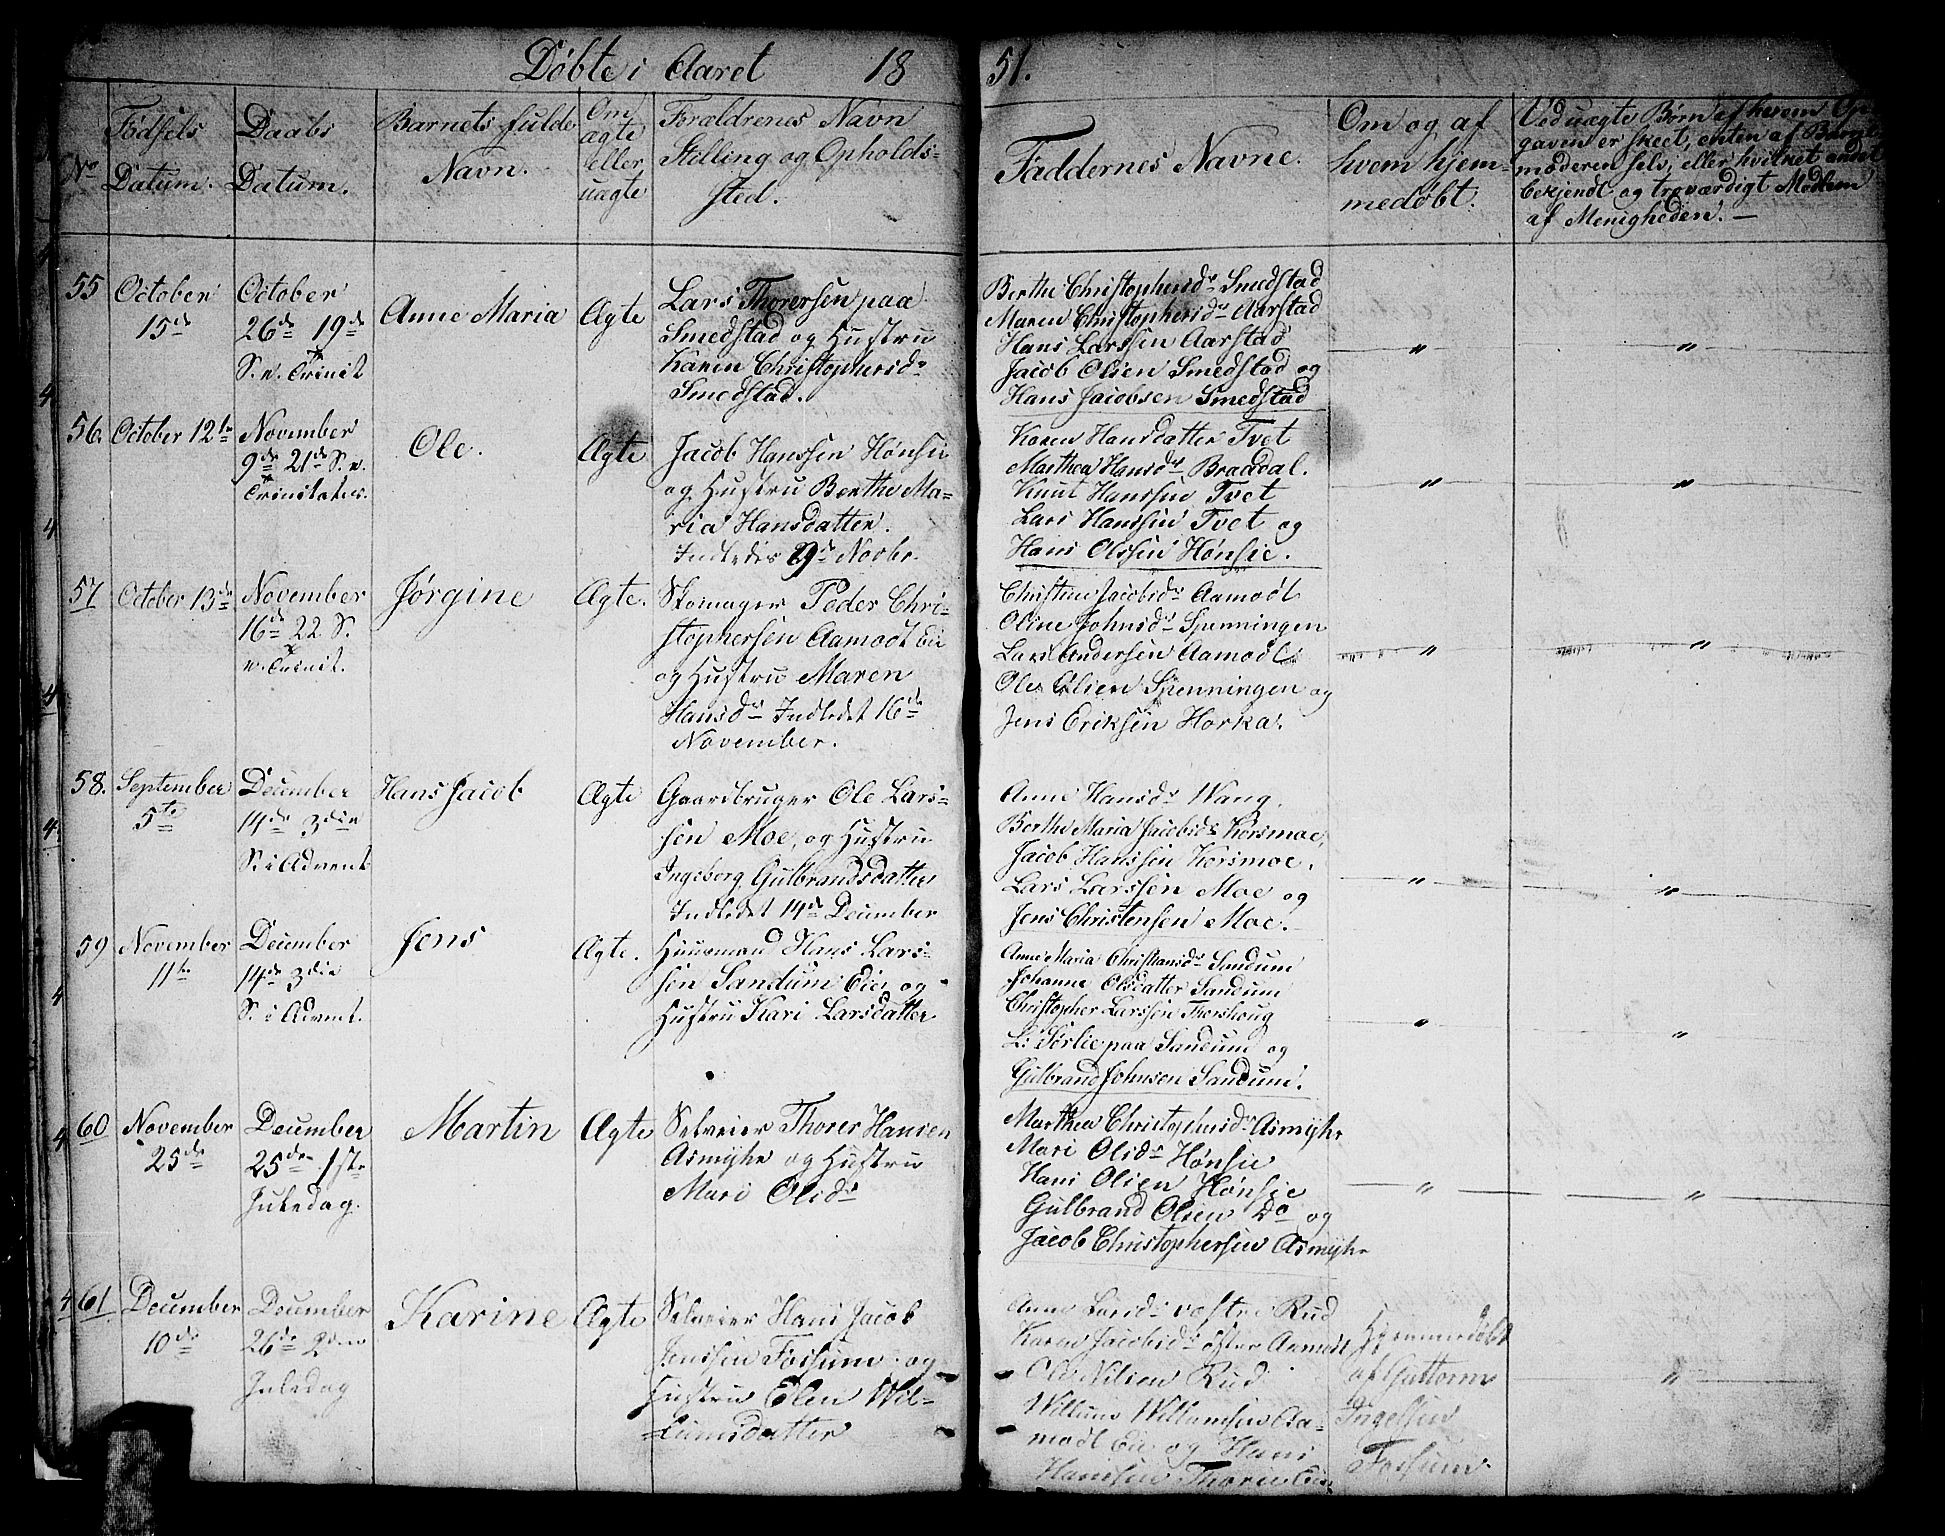 Døbte i Aaret 1851.
No
Fødsels
Datum.
Daabs
Datum.
Barnets fulde
Navn.
Om
ægte
eller
uægte
Forældrenes Navn
Stilling og Opholds-
sted.
Faddernes Navne.
Om og af
hvem hjem-
medøbt.
Ved uægte Børn af hvem Op-
gaven er skeet, enten af Barne-
moderen selv, eller hvilket andet
bekjendt og troværdigt Medlem
af Menigheden. —
55
October
15de
October
26de 19de
S. e. Trinit
Anne Maria
Ægte
Lars Thorersen paa
Smedstad og Hustru
Karen Christophersdr
Smedstad.
Berthe Christophersdr Smedstad
Maren Christophersdr Aarstad
Hans Larssen Aarstad
Jacob Olsen Smedstad og
Hans Jacobsen Smedstad
"
"
56.
October 12te
November
9de 21de S. e.
Trinitates.
Ole.
Ægte
Jacob Hanssen Hønsie
og Hustru Berthe Ma-
ria Hansdatter.
Indledes 9de Novbr.
Karen Hansdatter Tvet
Marthea Hansdr Braadal.
Knut Hanssen Tvet
Lars Hanssen Tvet og
Hans Olssen Hønsie.
"
"
57
October 13de
November
16de 22 S.
e. Trinit.
Jørgine
Ægte.
Skomager Peder Chri-
stophersen Aamodt Eie
og Hustru Maren
Hansdr Indledet 16de
November.
Christine Jacobsdr Aamodt
Oline Johnsdr Spenningen
Lars Andersen Aamodt
Ole Olsen Spenningen og
Jens Eriksen Horka.
"
"
58.
September
5te
December
14de 3die
S. i Advent
Hans Jacob
Ægte
Gaardbruger Ole Lars-
sen Moe, og Hustru
Ingeborg Gulbrandsdatter
Indledet 14de December
Anne Hansdr Wang.
Berthe Maria Jacobsdr Korsmoe,
Jacob Hanssen Korsmoe.
Lars Larssen Moe og
Jens Christensen Moe.
"
"
59
November
11te
December
14de 3die
S. i Advent.
Jens
Ægte.
Huusmand Hans Lars-
sen Sandum Eie, og
Hustru Kari Larsdatter
Anne Maria Christiansdr Sandum
Johanne Olsdatter Sandum
Christopher Larssen Thorshoug
L: Sørlie paa Sandum og
Gulbrand Johnsen Sandum.
"
"
60
November
25de
December
25de 1ste
Juledag.
Martin
Ægte
Selveier Thorer Hansen
Asmyhr og Hustru
Mari Olsdr
Marthea Christophersdr Asmyhr
Mari Olsdr Hønsie
Hans Olsen Hønsie
Gulbrand Olsen Do og
Jacob Christophersen Asmyhr
"
"
61
December
10de
December
26de 2den
Juledag
Karine
Ægte
Selveier Hans Jacob
Jenssen Fossum og
Hustru Elen Wil-
lumsdatter
Anne Larsdr vestre Rud
Karen Jacobsdr øster Aamodt
Ole Nilsen Rud
Willum Willumsen Aa-
modt Eie og Hans
Hanssen Thorud Eie
Hjemmedøbt
af Guttorm
Ingelsen
Fossum.
"